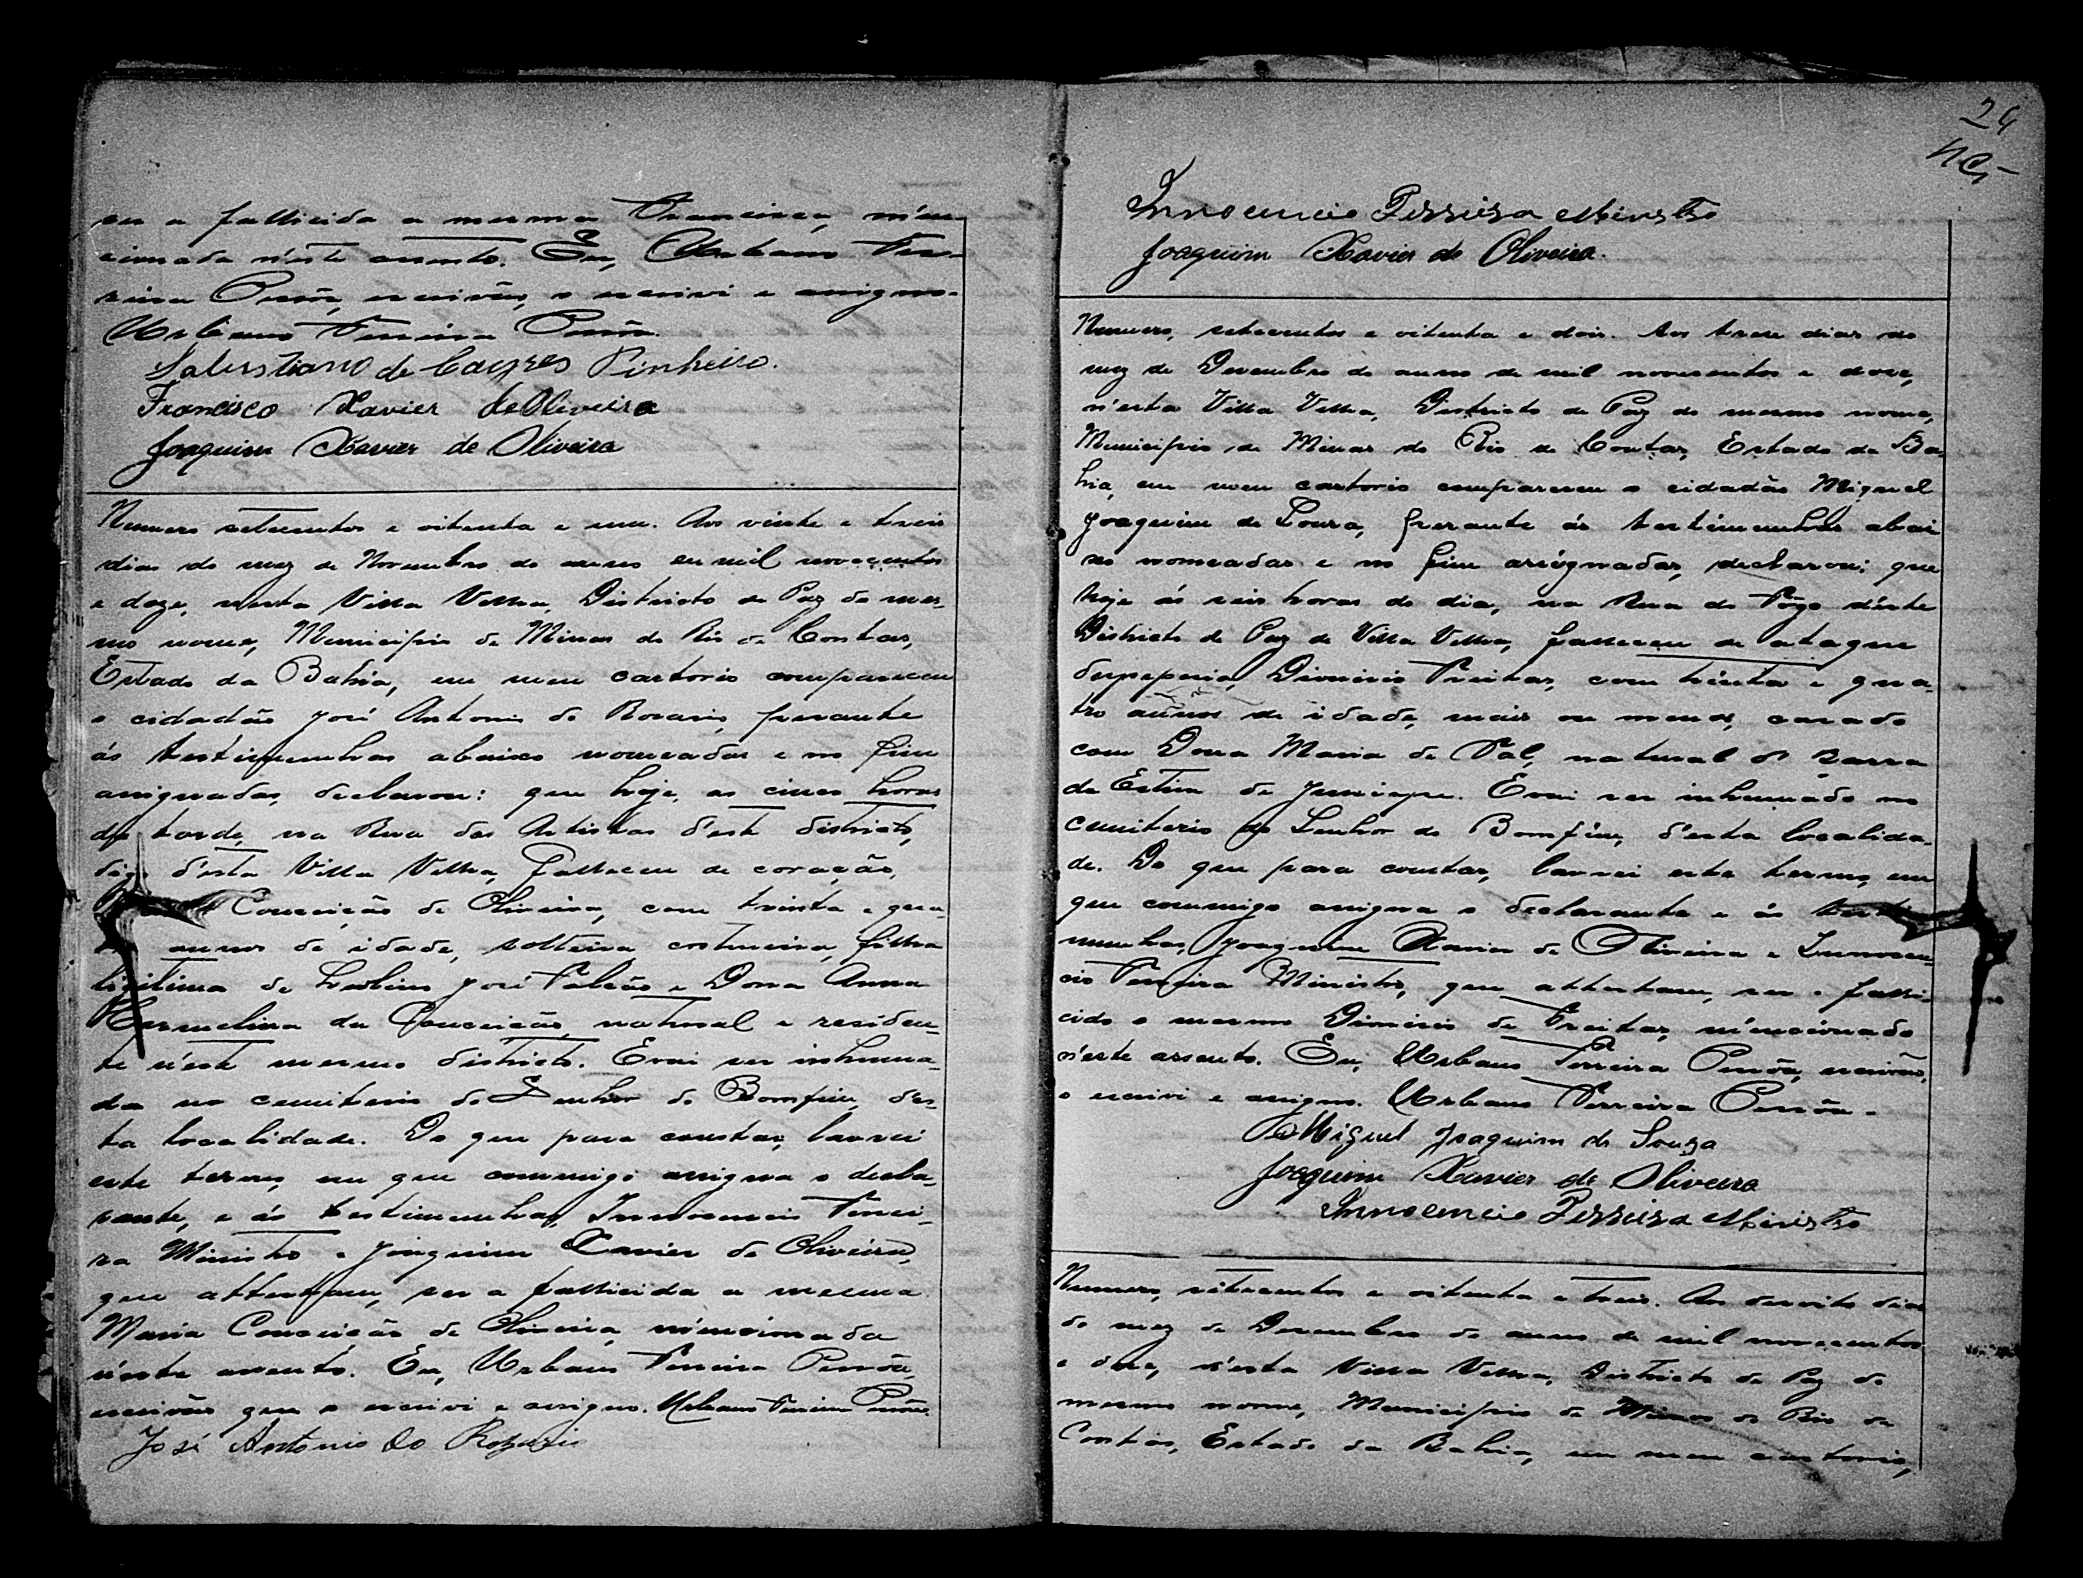 ser a fallicida a mesma Francisca, min-
cionada n'este assento. Eu, Urbano Fer-
reira Penôa, escrivão, o escrivi e assigno.
Urbano Ferreira Penôa.
Salustiano de Caypes Pinheiro.
Francisco Xavier de Oliveira
Joaquim Xavier de Oliveira
Numero setecentos e oitenta e um. Aos vinte e treis
dias do mez de Novembro do anno em mil novecentos
e doze, nesta Villa Velha, Districto de Paz do mes-
mo nome, Municipio de Minas do Rio de Contas,
Estado da Bahia, em meu cartorio compareceu
o cidadão José Antonio do Rosario, perante
ás testimunhas abaixo nomeadas e no fim
assignadas, declarou: que hoje, as cinco horas
da tarde, na Rua dos Artistas d'este districto,
digo d'esta Villa Velha, Falleceu de coração,
Conceição de Oliveira, com trinta e qua-
annos de idade, solteira, costureira, filha
ligitima de José Falcão e Dona Anna
Carmelina da Conceição, natural e residen-
te n'este mesmo districto. E vai ser inhuma-
da no cemiterio do Senhor do Bomfim, des-
ta localidade. Do que para constar, lavrei
este termo, em que commigo assigna o decla-
rante, e ás testimunhas, Innocencio Ferrei-
ra Ministro e Joaquim Xavier de Oliveira,
que attestam, ser a fallicida a mesma
Maria Conceição de Oliveira mincionada
n'este assento. Eu, Urbano Ferreira Penôa,
escrivão que o escrivi e assigno. Urbano Ferreira Penôa.
José Antonio do Rosario
24
Innocencio Ferreira Ministro
Joaquim Xavier de Oliveira.
Numero, setecentos e oitenta e dois. Aos treze dias do
mez de Dezembro do anno de mil novecentos e doze,
n'esta Villa Velha, Districto de Paz do mesmo nome,
Municipio de Minas do Rio de Contas, Estado da Ba-
hia, em meu cartorio compareceu o cidadão Miguel
Joaquim de Souza, perante ás testimunhas abai
xo nomeadas e no fim assignadas, declarou: que
hoje ás seis horas do dia, na Rua do Fôgo d'este
Districto de Paz de Villa Velha, falleceu de ataque
Dionisio Freitas, com trinta e qua-
tro annos de idade, mais ou menos, casado
com Dona Maria do Val, natural d' Barra
da Estiva de Jussiape. E vai ser inhumado no
cemiterio do Senhor do Bomfim, d'esta localida-
de. Do que para constar, lavrei este termo, em
que commigo assigna o declarante e ás testi
munhas, Joaquim Xavier de Oliveira e Innocen-
cio Ferreira Ministro, que attestam, ser o falli-
cido o mesmo Dionisio de Freitas, mincionado
n'este assento. Eu, Urbano Ferreira Penôa, escrivão,
o escrivi e assigno. Urbano Ferreira Penôa.
Miguel Joaquim de Souza
Joaquim Xavier de Oliveira
Innocencio Ferreira Ministro
Numero, setecentos e oitenta e treis. Aos dezoito dias
do mez de Dezembro do anno de mil novecentos
e doze, n'esta Villa Velha, Districto de Paz do
mesmo nome, Municipio de Minas do Rio de
Contas, Estado da Bahia, em meu cartorio,